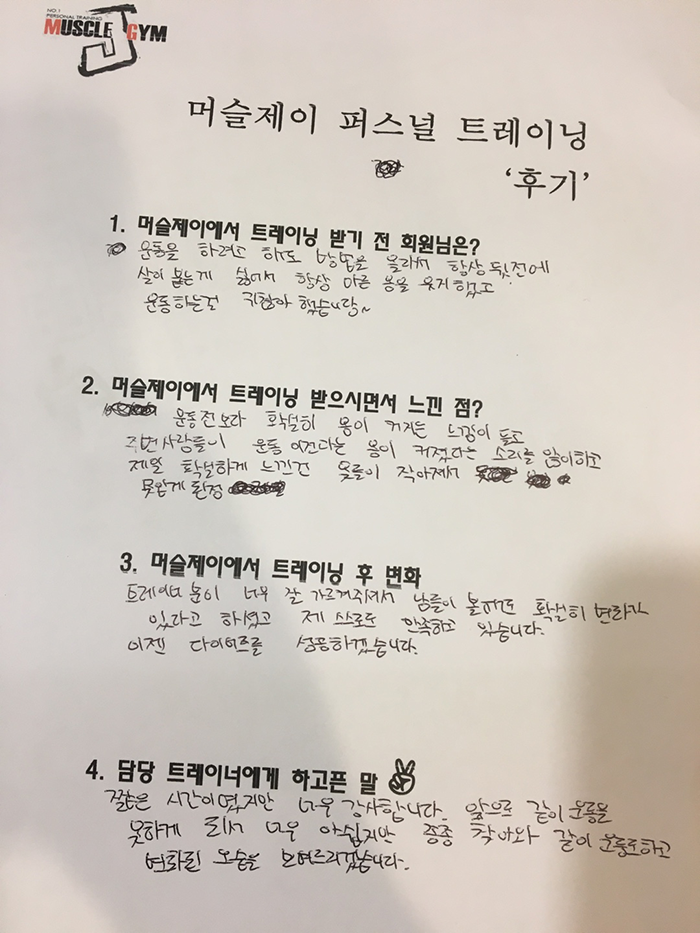 NO.1
PERSONAL TRAINING
MUSCLE J GYM
머슬제이 퍼스널 트레이닝
‘후기’
1. 머슬제이에서 트레이닝 받기 전 회원님은?
운동을 하려고 해도 방법을 몰라서 항상 뒷전에
살이 붙는게 싫어서 항상 마른 몸을 유지했고
운동하는걸 귀찮아 했습니당~
2. 머슬제이에서 트레이닝 받으시면서 느낀 점?
운동전보다 확실히 몸이 커지는 느낌이 들고
주변사람들이 운동 몸이 커졌다는 소리를 많이하고
제일 확실하게 느낀건 옷들이 작아져서
못입게 된점
3. 머슬제이에서 트레이닝 후 변화
트레이너 분이 너무 잘 가르쳐주셔서 남들이 볼때도 확실히 변화가
있다고 하셨고 제 스스로도 만족하고 있습니다.
이젠 다이어트를 성공하겠습니다.
4. 담당 트레이너에게 하고픈 말
짧은 시간이였지만 너무 감사합니다. 앞으로 같이 운동을
못하게 되서 너무 아쉽지만 종종 찾아와 같이 운동도하고
변화된 모습을 보여드리겠습니다.